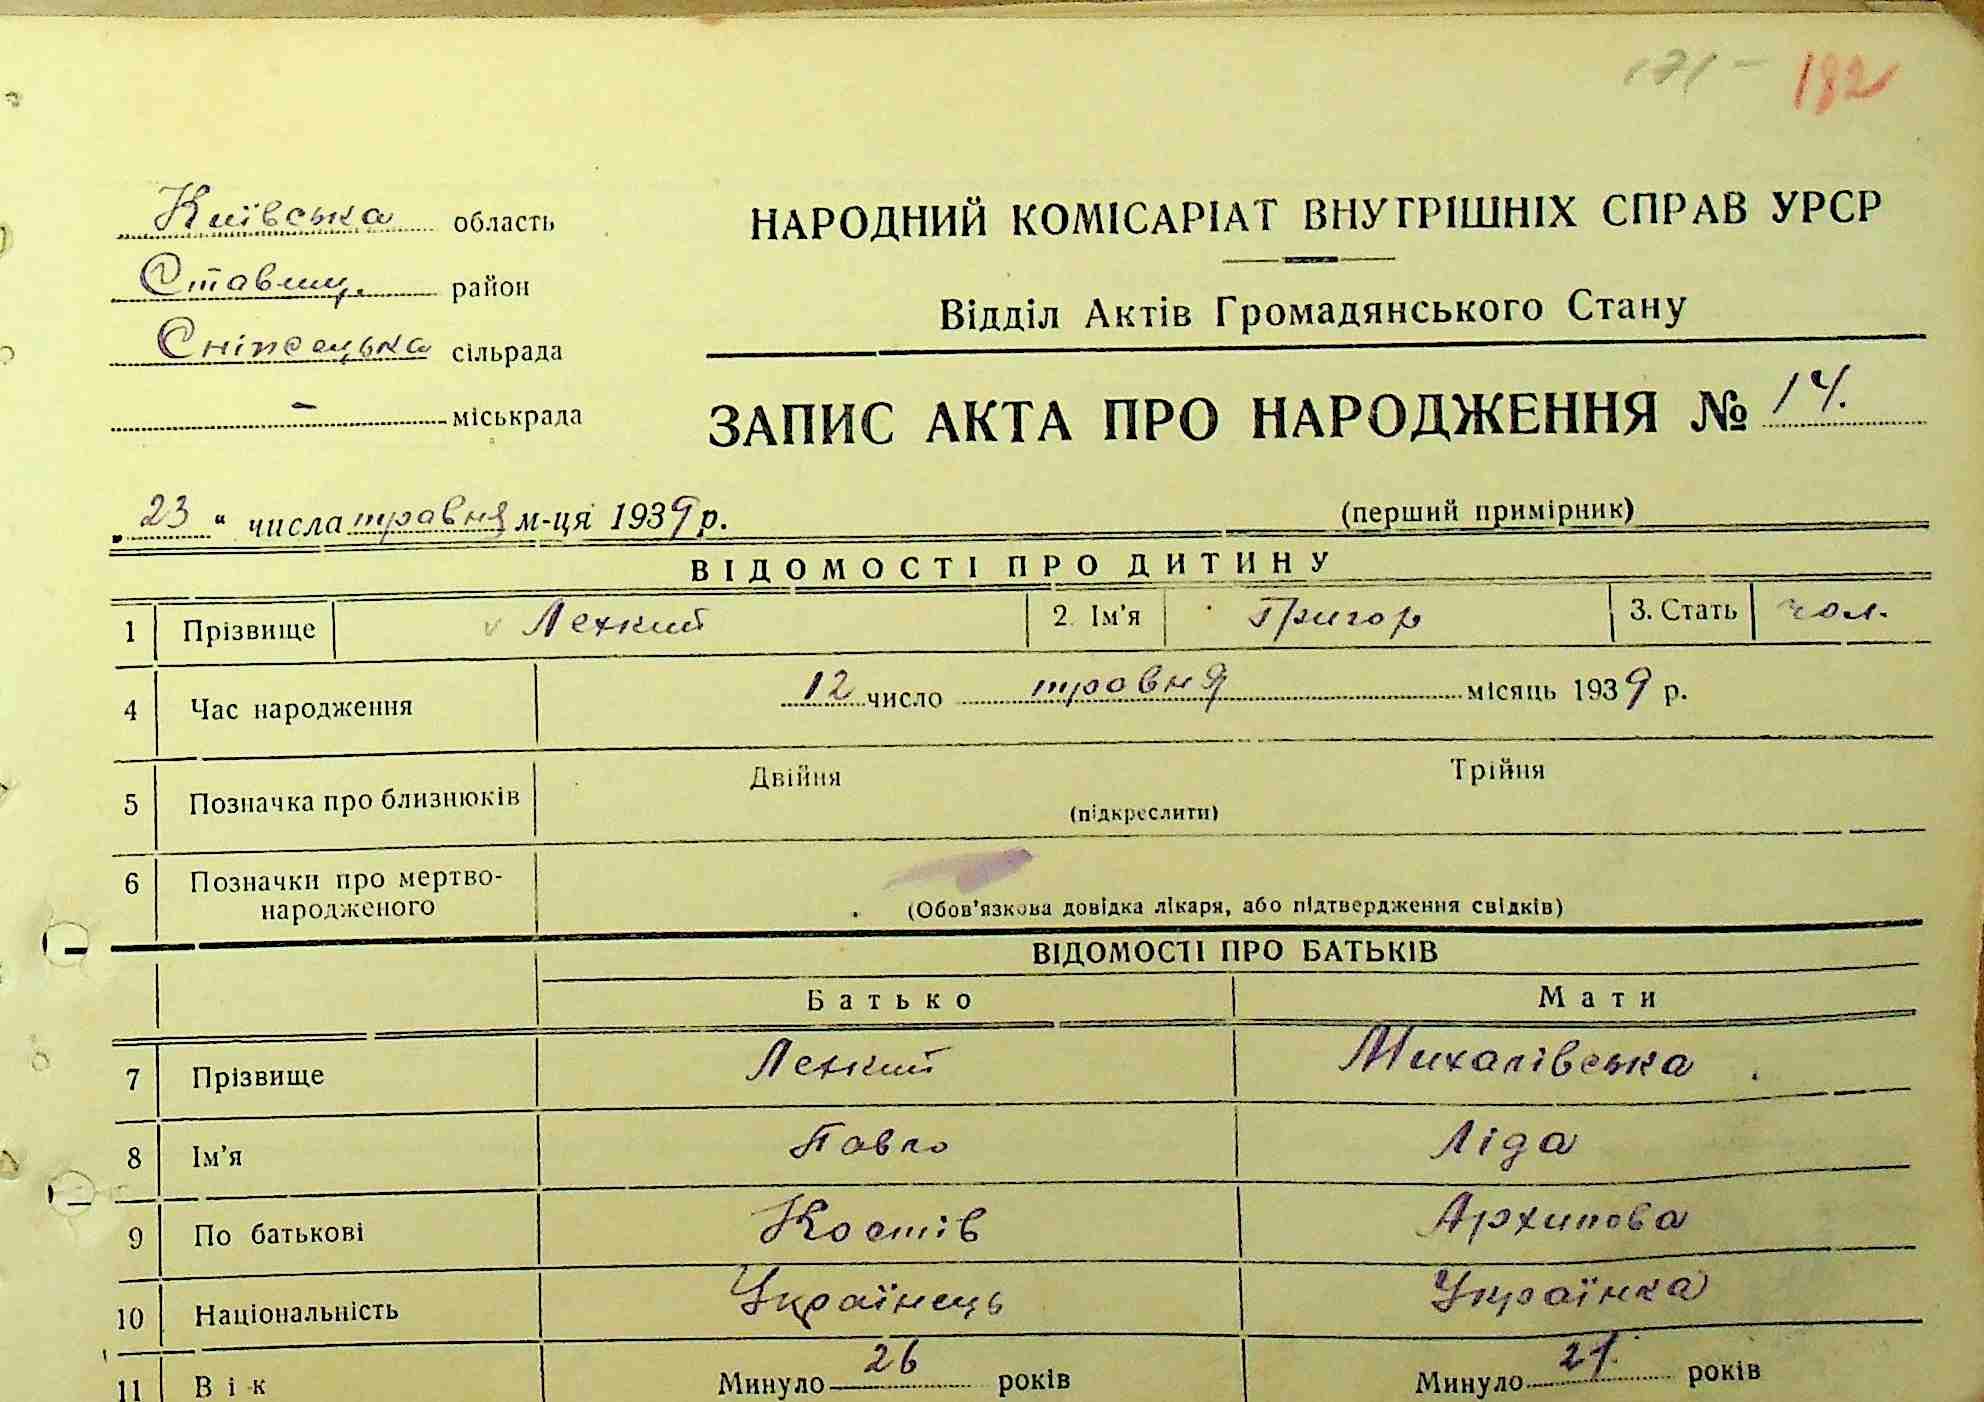 171 - 182
Київська область
Ставищ. район
Сніжецька сільрада
- міськрада
НАРОДНИЙ КОМІСАРІАТ ВНУТРІШНІХ СПРАВ УРСР
Відділ Актів Громадянського Стану
ЗАПИС АКТА ПРО НАРОДЖЕННЯ № 14.
„23“ числа травня м-ця 1939 р.
(перший примірник)
ВІДОМОСТІ ПРО ДИТИНУ
1 Прізвище Легкий 2. Ім'я Григор 3. Стать чол.
4 Час народження 12 число травня місяць 1939 р.
5 Позначка про близнюків Двійня Трійня
(підкреслити)
6 Позначки про мертво-
народженого
(Обов'язкова довідка лікаря, або підтвердження свідків)
ВІДОМОСТІ ПРО БАТЬКІВ
Батько Мати
7 Прізвище Легкий Михалівська
8 Ім'я Павло Ліда
9 По батькові Костів Архипова
10 Національність Українець Українка
11 Вік Минуло 26 років Минуло 21. років